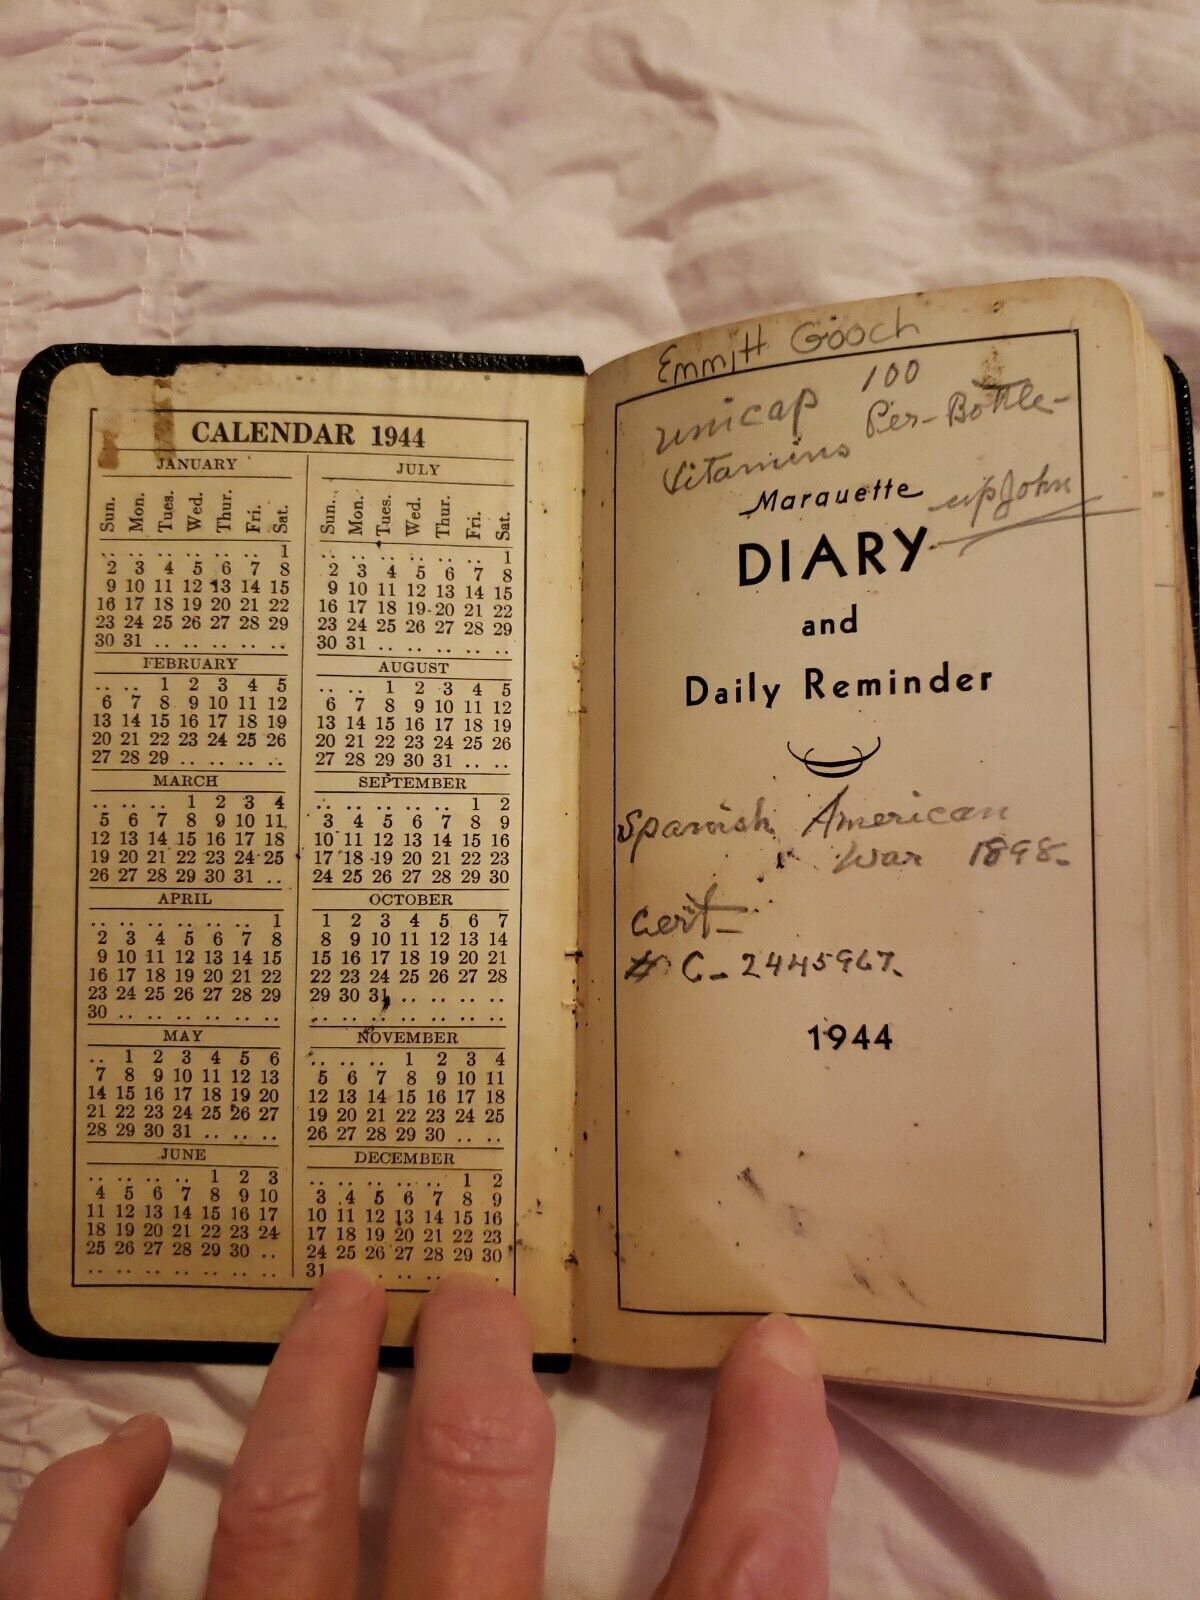 CALENDAR 1944
JANUARY
Sun. Mon. Tues. Wed. Thur. Fri. Sat.
.. .. .. .. .. .. 1
2 3 4 5 6 7 8
9 10 11 12 13 14 15
16 17 18 19 20 21 22
23 24 25 26 27 28 29
30 31 .. .. .. .. ..
FEBRUARY
.. .. 1 2 3 4 5
6 7 8 9 10 11 12
13 14 15 16 17 18 19
20 21 22 23 24 25 26
27 28 29 .. .. .. ..
MARCH
.. .. .. 1 2 3 4
5 6 7 8 9 10 11
12 13 14 15 16 17 18
19 20 21 22 23 24 25
26 27 28 29 30 31 ..
APRIL
.. .. .. .. .. .. 1
2 3 4 5 6 7 8
9 10 11 12 13 14 15
16 17 18 19 20 21 22
23 24 25 26 27 28 29
30 .. .. .. .. .. ..
MAY
.. 1 2 3 4 5 6
7 8 9 10 11 12 13
14 15 16 17 18 19 20
21 22 23 24 25 26 27
28 29 30 31 .. .. ..
JUNE
.. .. .. .. 1 2 3
4 5 6 7 8 9 10
11 12 13 14 15 16 17
18 19 20 21 22 23 24
25 26 27 28 29 30 ..
.. .. .. .. .. .. ..
JULY
Sun. Mon. Tues. Wed. Thur. Fri. Sat.
.. .. .. .. .. .. 1
2 3 4 5 6 7 8
9 10 11 12 13 14 15
16 17 18 19 20 21 22
23 24 25 26 27 28 29
30 31 .. .. .. .. ..
AUGUST
.. .. 1 2 3 4 5
6 7 8 9 10 11 12
13 14 15 16 17 18 19
20 21 22 23 24 25 26
27 28 29 30 31 .. ..
SEPTEMBER
.. .. .. .. .. 1 2
3 4 5 6 7 8 9
10 11 12 13 14 15 16
17 18 19 20 21 22 23
24 25 26 27 28 29 30
OCTOBER
1 2 3 4 5 6 7
8 9 10 11 12 13 14
15 16 17 18 19 20 21
22 23 24 25 26 27 28
29 30 31 .. .. .. ..
.. .. .. .. .. .. ..
NOVEMBER
.. .. .. 1 2 3 4
5 6 7 8 9 10 11
12 13 14 15 16 17 18
19 20 21 22 23 24 25
26 27 28 29 30 .. ..
DECEMBER
.. .. .. .. .. 1 2
3 4 5 6 7 8 9
10 11 12 13 14 15 16
17 18 19 20 21 22 23
24 25 26 27 28 29 30
31 .. .. .. .
Emmitt Gooch
unicap 100
Vitamins Per-Bottle-
upJohn
Marquette
DIARY
and
Daily Reminder
Spanish American
War 1898-
Cert-
# C-2445967.
1944